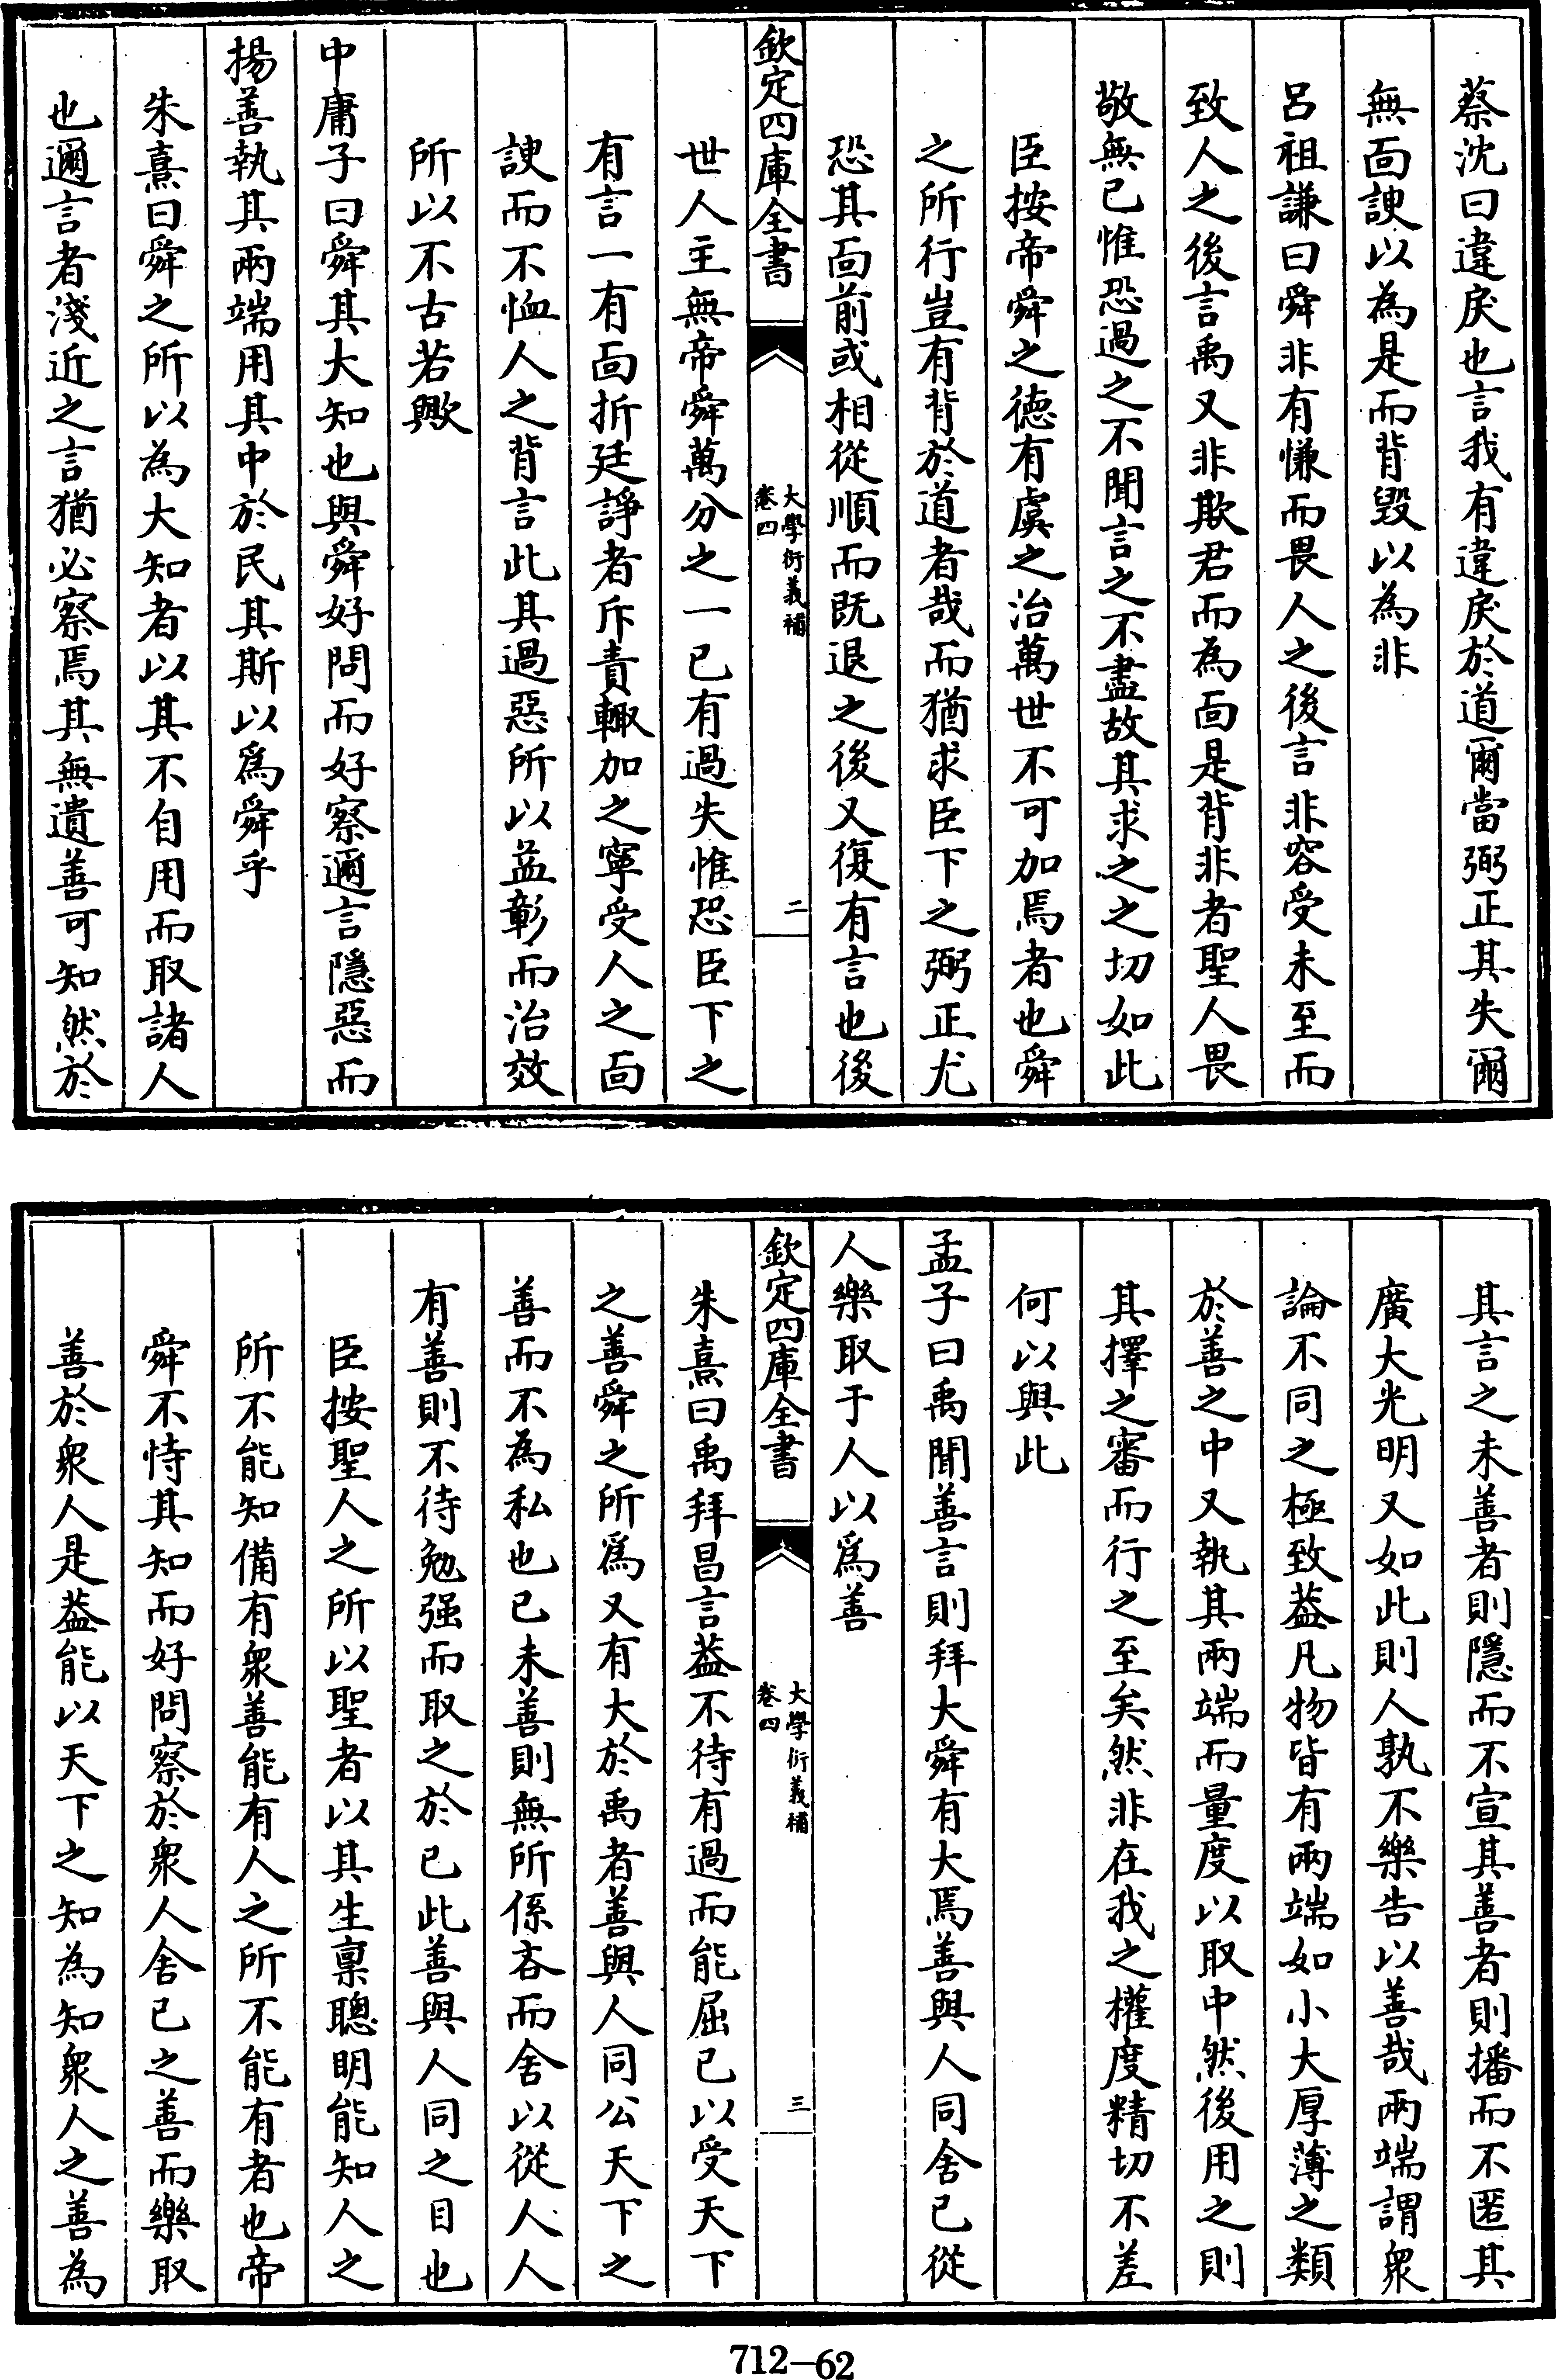 蔡沈曰違戾也言我有違戾於道爾當弼正其失爾
無面諛以為是而背毀以為非
呂祖謙曰舜非有慊而畏人之後言非容受未至而
致人之後言禹又非欺君而為面是背非者聖人畏
敬無已惟恐過之不聞言之不盡故其求之之切如此
臣按帝舜之德有虞之治萬世不可加焉者也舜
之所行豈有背於道者哉而猶求臣下之弼正尤
恐其面前或相從順而既退之後又復有言也後
欽定四庫全書
大學衍義補
卷四
二
世人主無帝舜萬分之一已有過失惟恐臣下之
有言一有面折廷諍者斥責輙加之寧受人之面
諛而不恤人之背言此其過惡所以益彰而治效
所以不古若歟
中庸子曰舜其大知也與舜好問而好察邇言隱惡而
揚善執其兩端用其中於民其斯以爲舜乎
朱熹曰舜之所以為大知者以其不自用而取諸人
也邇言者淺近之言猶必察焉其無遺善可知然於
其言之未善者則隱而不宣其善者則播而不匿其
廣大光明又如此則人孰不樂告以善哉兩端謂衆
論不同之極致葢凡物皆有兩端如小大厚薄之類
於善之中又執其兩端而量度以取中然後用之則
其擇之審而行之至矣然非在我之權度精切不差
何以與此
孟子曰禹聞善言則拜大舜有大焉善與人同舍已從
人樂取于人以爲善
欽定四庫全書
大學衍義補
卷四
三
朱熹曰禹拜昌言葢不待有過而能屈已以受天下
之善舜之所爲又有大於禹者善與人同公天下之
善而不為私也已未善則無所係吝而舍以從人人
有善則不待勉强而取之於已此善與人同之目也
臣按聖人之所以聖者以其生禀聰明能知人之
所不能知備有衆善能有人之所不能有者也帝
舜不恃其知而好問察於衆人舍已之善而樂取
善於衆人是葢能以天下之知為知衆人之善為
712-62